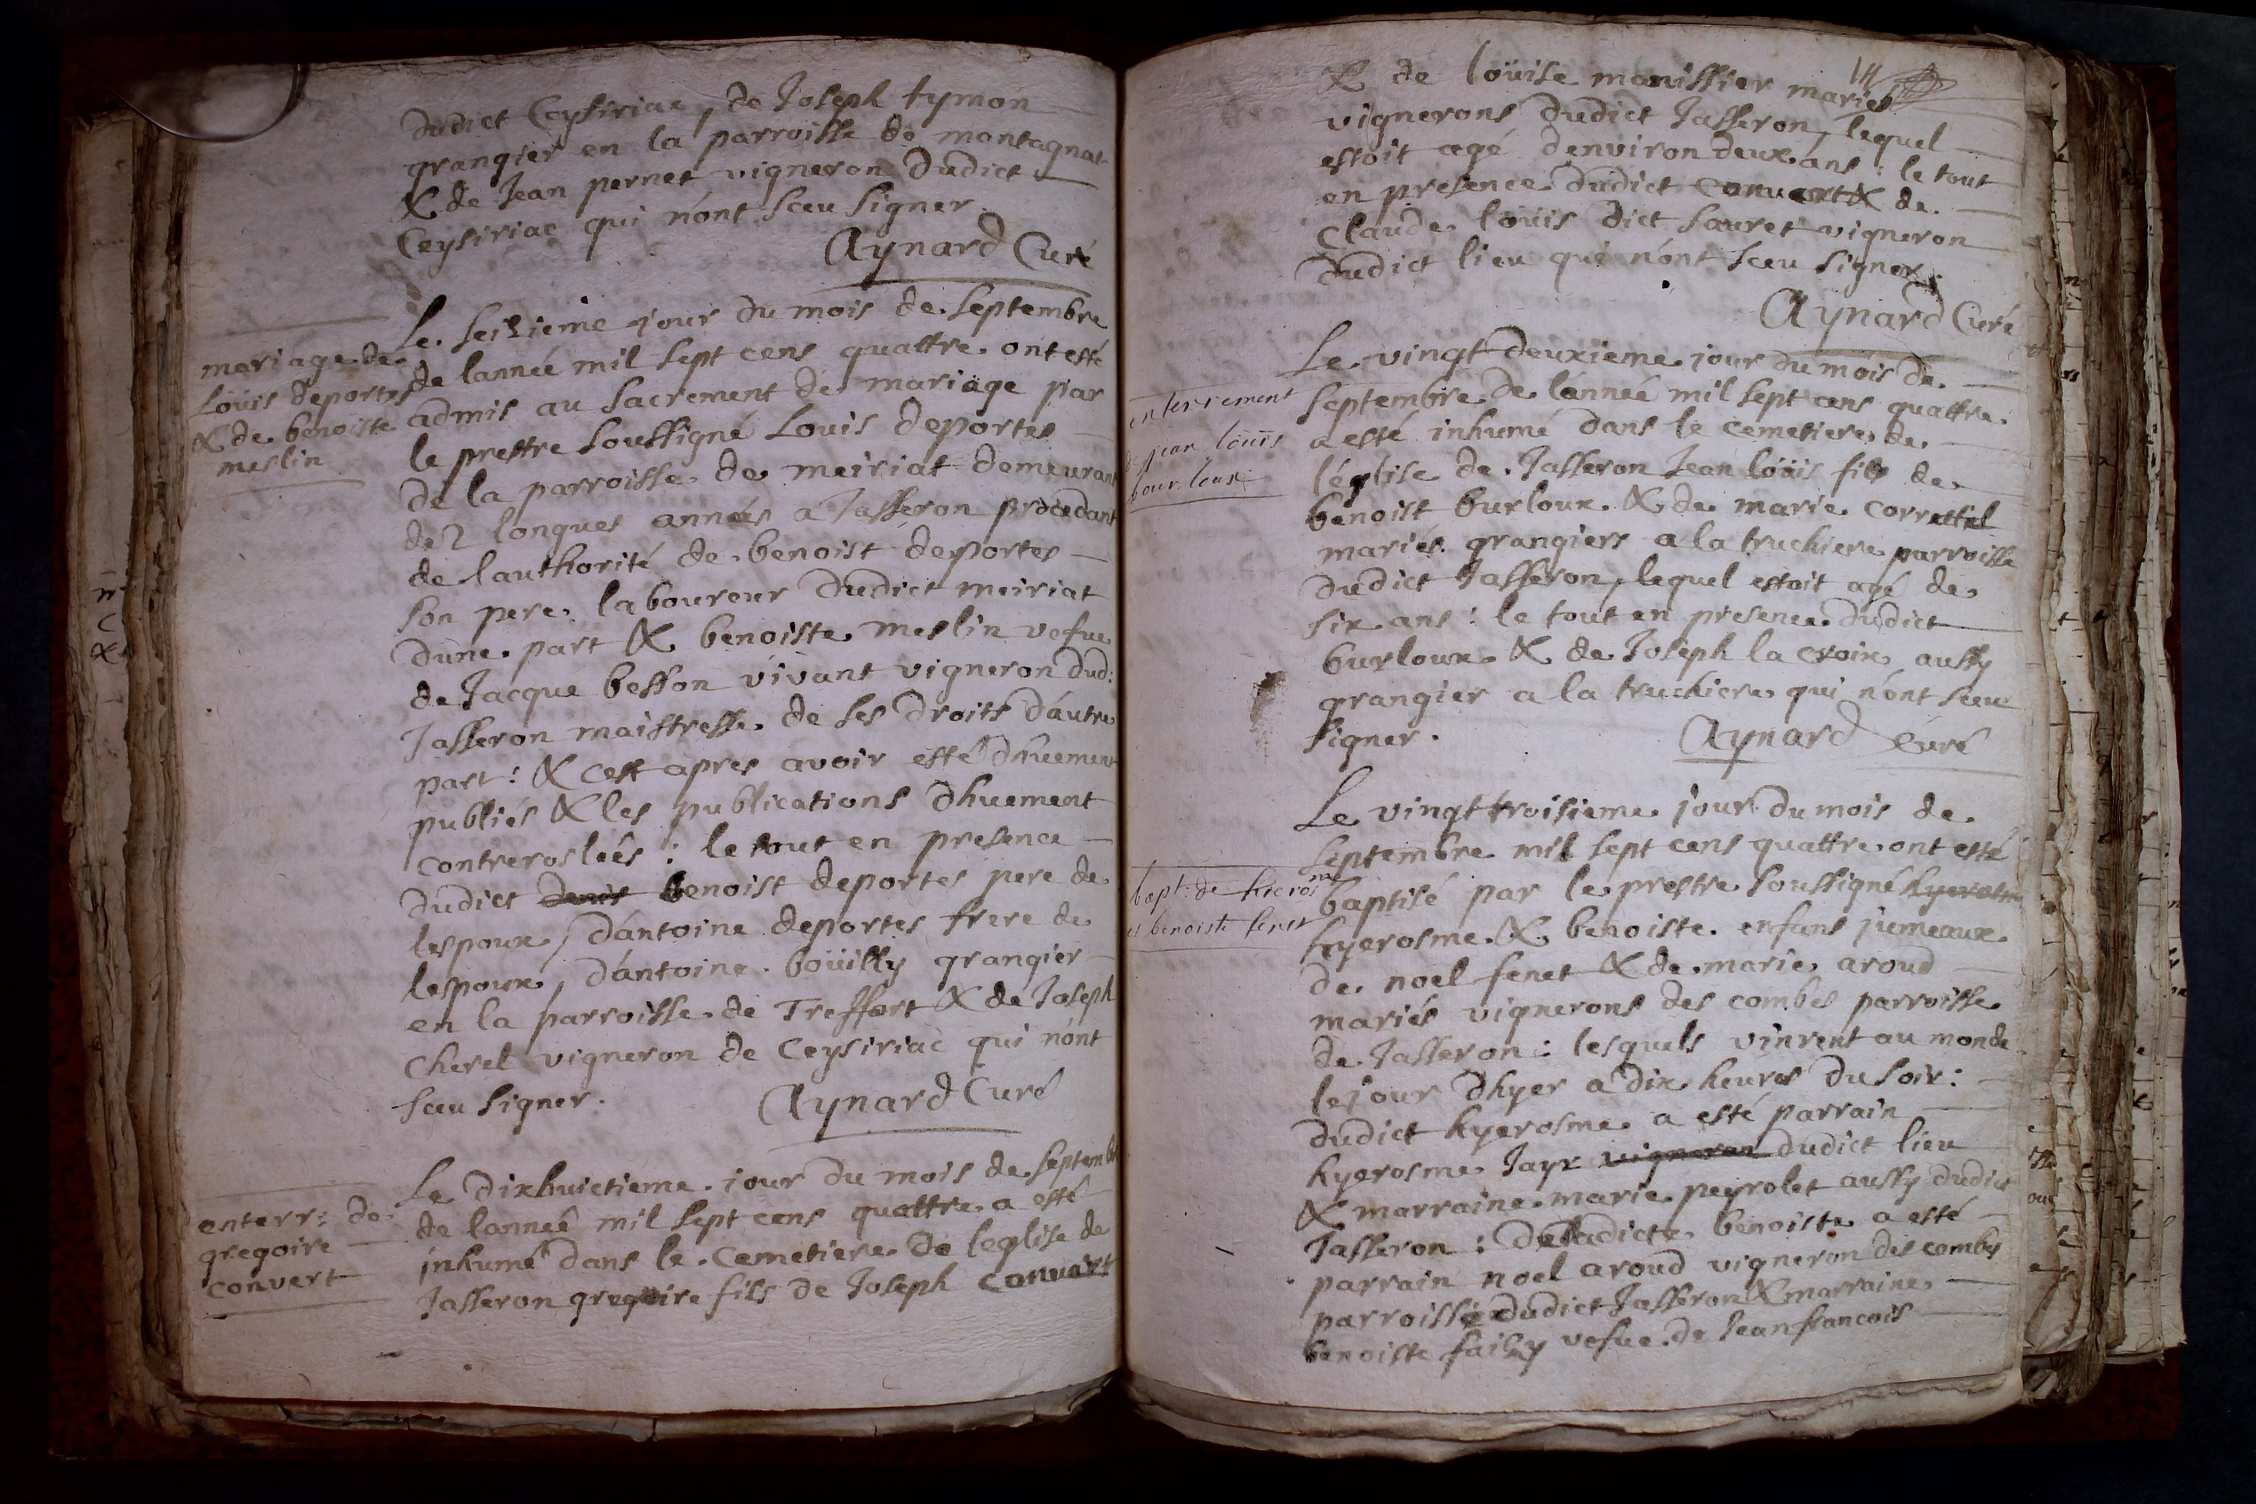 dudict Ceysiriac, de Joseph tymon
grangier en la parroisse de montagnat
& de Jean pernet vigneron dudict
Ceysiriac qui n'ont sceu signer.
Aynard Curé
mariage de
Louis deportes
& de benoiste
meslin
Le seizieme jour du mois de septembre
de lannée mil sept cens quattre ont esté
admis au sacrement de mariage par
le prestre soussigné Louis deportes
de la parroisse de meiriat demeurant
dez longues années a Jasseron procedant
de lauthorité de benoist deportes
son pere laboureur dudict meiriat
dune part & benoiste meslin vefue
de Jacque besson vivant vigneron dud:
Jasseron maistresse de ses droits d'autre
part: & cest apres avoir esté dhuement
publiés & les publications dhuement
contreroslées: le tout en presence
dudict denis benoist deportes pere de
lespoux, d'antoine deportes frere de
lespoux, d'antoine boüilly grangier
en la parroisse de Treffort & de Joseph
Cherel vigneron de Ceysiriac qui n'ont
sceu signer.
Aynard Curé
enterr: de
gregoire
convert
Le dixhuictieme jour du mois de septemb
de lanneé mil sept cens quattre a esté
inhumé dans le cemetiere de leglise de
Jasseron gregoire fils de Joseph convert
14
& de loüise manissier mariés
vignerons dudict Jasseron, lequel
estoit agé denviron deux ans: le tout
en presence dudict convert & de
Claude loüis dict sauret vigneron
dudict lieu qui n'ont sceu signer.
Aynard Curé
enterrement
de jean loüis
bourloux
Le vingt deuxieme jour du mois de
septembre de l'année mil sept cens quattre
a esté inhumé dans le cemetiere de
léglise de Jasseron Jean loüis fils de
benoist burloux & de marie correttel
mariés grangiers a la truchiere parroisse
dudict Jasseron, lequel estoit agé de
six ans: le tout en presence dudict
burloux & de Joseph la croix aussy
grangier a la truchiere qui n'ont sceu
signer.
Aynard Curé
bapt: de hieros
me
et benoiste fenet
Le vingt troisieme jour du mois de
septembre mil sept cens quattre ont esté
baptisé par le prestre soussigné hyerosme
hyerosme & benoiste enfans jumeaux
de noel fenet & de marie aroud
mariés vignerons des combes parroisse
de Jasseron: lesquels vinrent au monde
le jour dhyer a dix heures du soir:
dudict hyerosme a esté parrain
hyerosme Jayr vigneron dudict lieu
& marraine marie peyrolet aussy dudict
Jasseron: deladicte benoiste a esté
parrain noel aroud vigneron des combes
parroisse dudict Jasseron & marraine
benoiste failly vefue de Jean francois